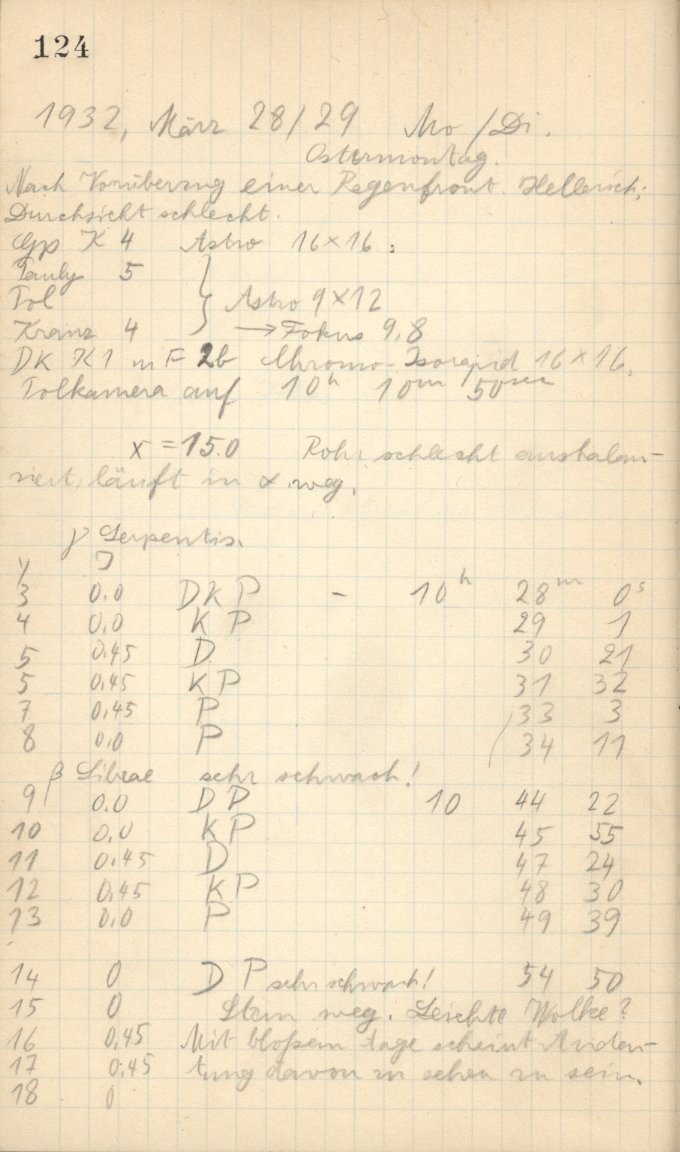 124
1932, März 28/29 Mo/Di.
Ostermontag.
Nach Vorüberzug einer Regenfront.
Durchsicht schlecht.
Gp K 4 Astro 16×16.
Pauly 5
Tol } Astro 9×12
Kranz 4 → Fokus 9,8
DK K1 m F 2b Chromo-Isorapid 16×16.
Tolkamera auf 10h 10m 50sec
x = 15.0 Rohr schlecht ausbalan-
ziert, läuft in α weg.
γ Serpentis.
3 0.0 DKP - 10h 28m 0s
4 0.0 KP 29 1
5 0,45 D 30 21
5 0,45 KP 31 32
7 0,45 P 33 3
8 0,0 P 34 11
β Librae sehr schwach!
9 0.0 DP 10 44 22
10 0,0 KP 45 55
11 0,45 D 47 24
12 0,45 KP 48 30
13 0,0 P 49 39
14 0 DP sehr schwach! 54 50
15 0 Stern weg. Leichte Wolke?
16 0,45 Mit bloßem Auge scheint Andeu-
17 0,45 tung davon zu sehen zu sein.
18 0